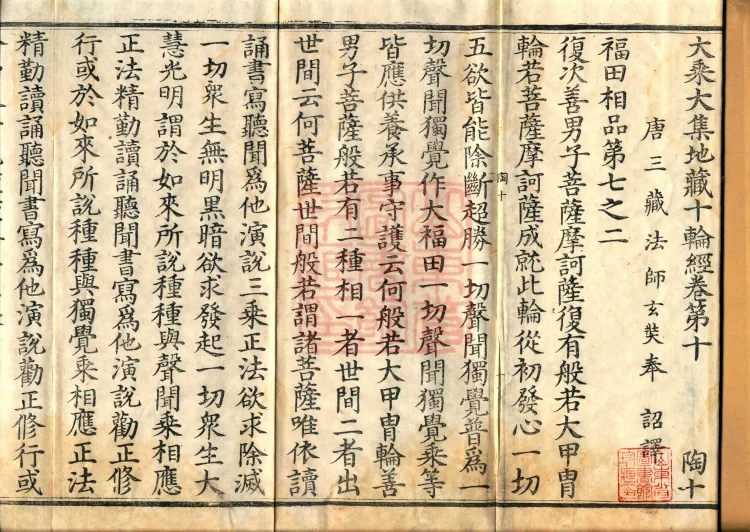 大乘大集地藏十輪經卷第十 陶十
唐三藏法師玄奘奉 詔譯
福田相品第七之二
復次善男子菩薩摩訶薩復有般若大甲冑
輪若菩薩摩訶薩成就此輪從初發心一切
陶十
五欲皆能除斷超勝一切聲聞獨覺普爲一
切聲聞獨覺作大福田一切聲聞獨覺乘等
皆應供養承事守護云何般若大甲冑輪善
男子菩薩般若有二種相一者世間二者出
世間云何菩薩世間般若謂諸菩薩唯依讀
誦書寫聽聞爲他演說三乘正法欲求除滅
一切衆生無明黑暗欲求發起一切衆生大
慧光明謂於如來所說種種與聲聞乘相應
正法精勤讀誦聽聞書寫爲他演說勸正修
行或於如來所說種種與獨覺乘相應正法
精勤讀誦聽聞書寫爲他演說勸正修行或